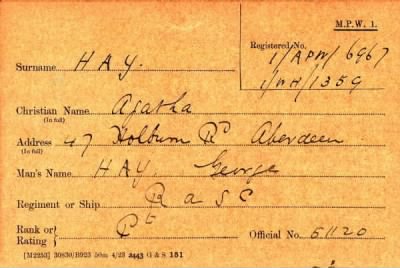 M.P.W. 1.
Registered No.
1/APW/6967
1/WH/1359
Surname HAY.
Christian Name Agatha
(In full)
Address 47 Holburn Rd Aberdeen
(In full)
Man's Name HAY. George
Regiment or Ship R A S C
Rank or Rating} Pt
Official No. 51120
[M2253] 30830/B923 50m 4/23 2443 G & S 151